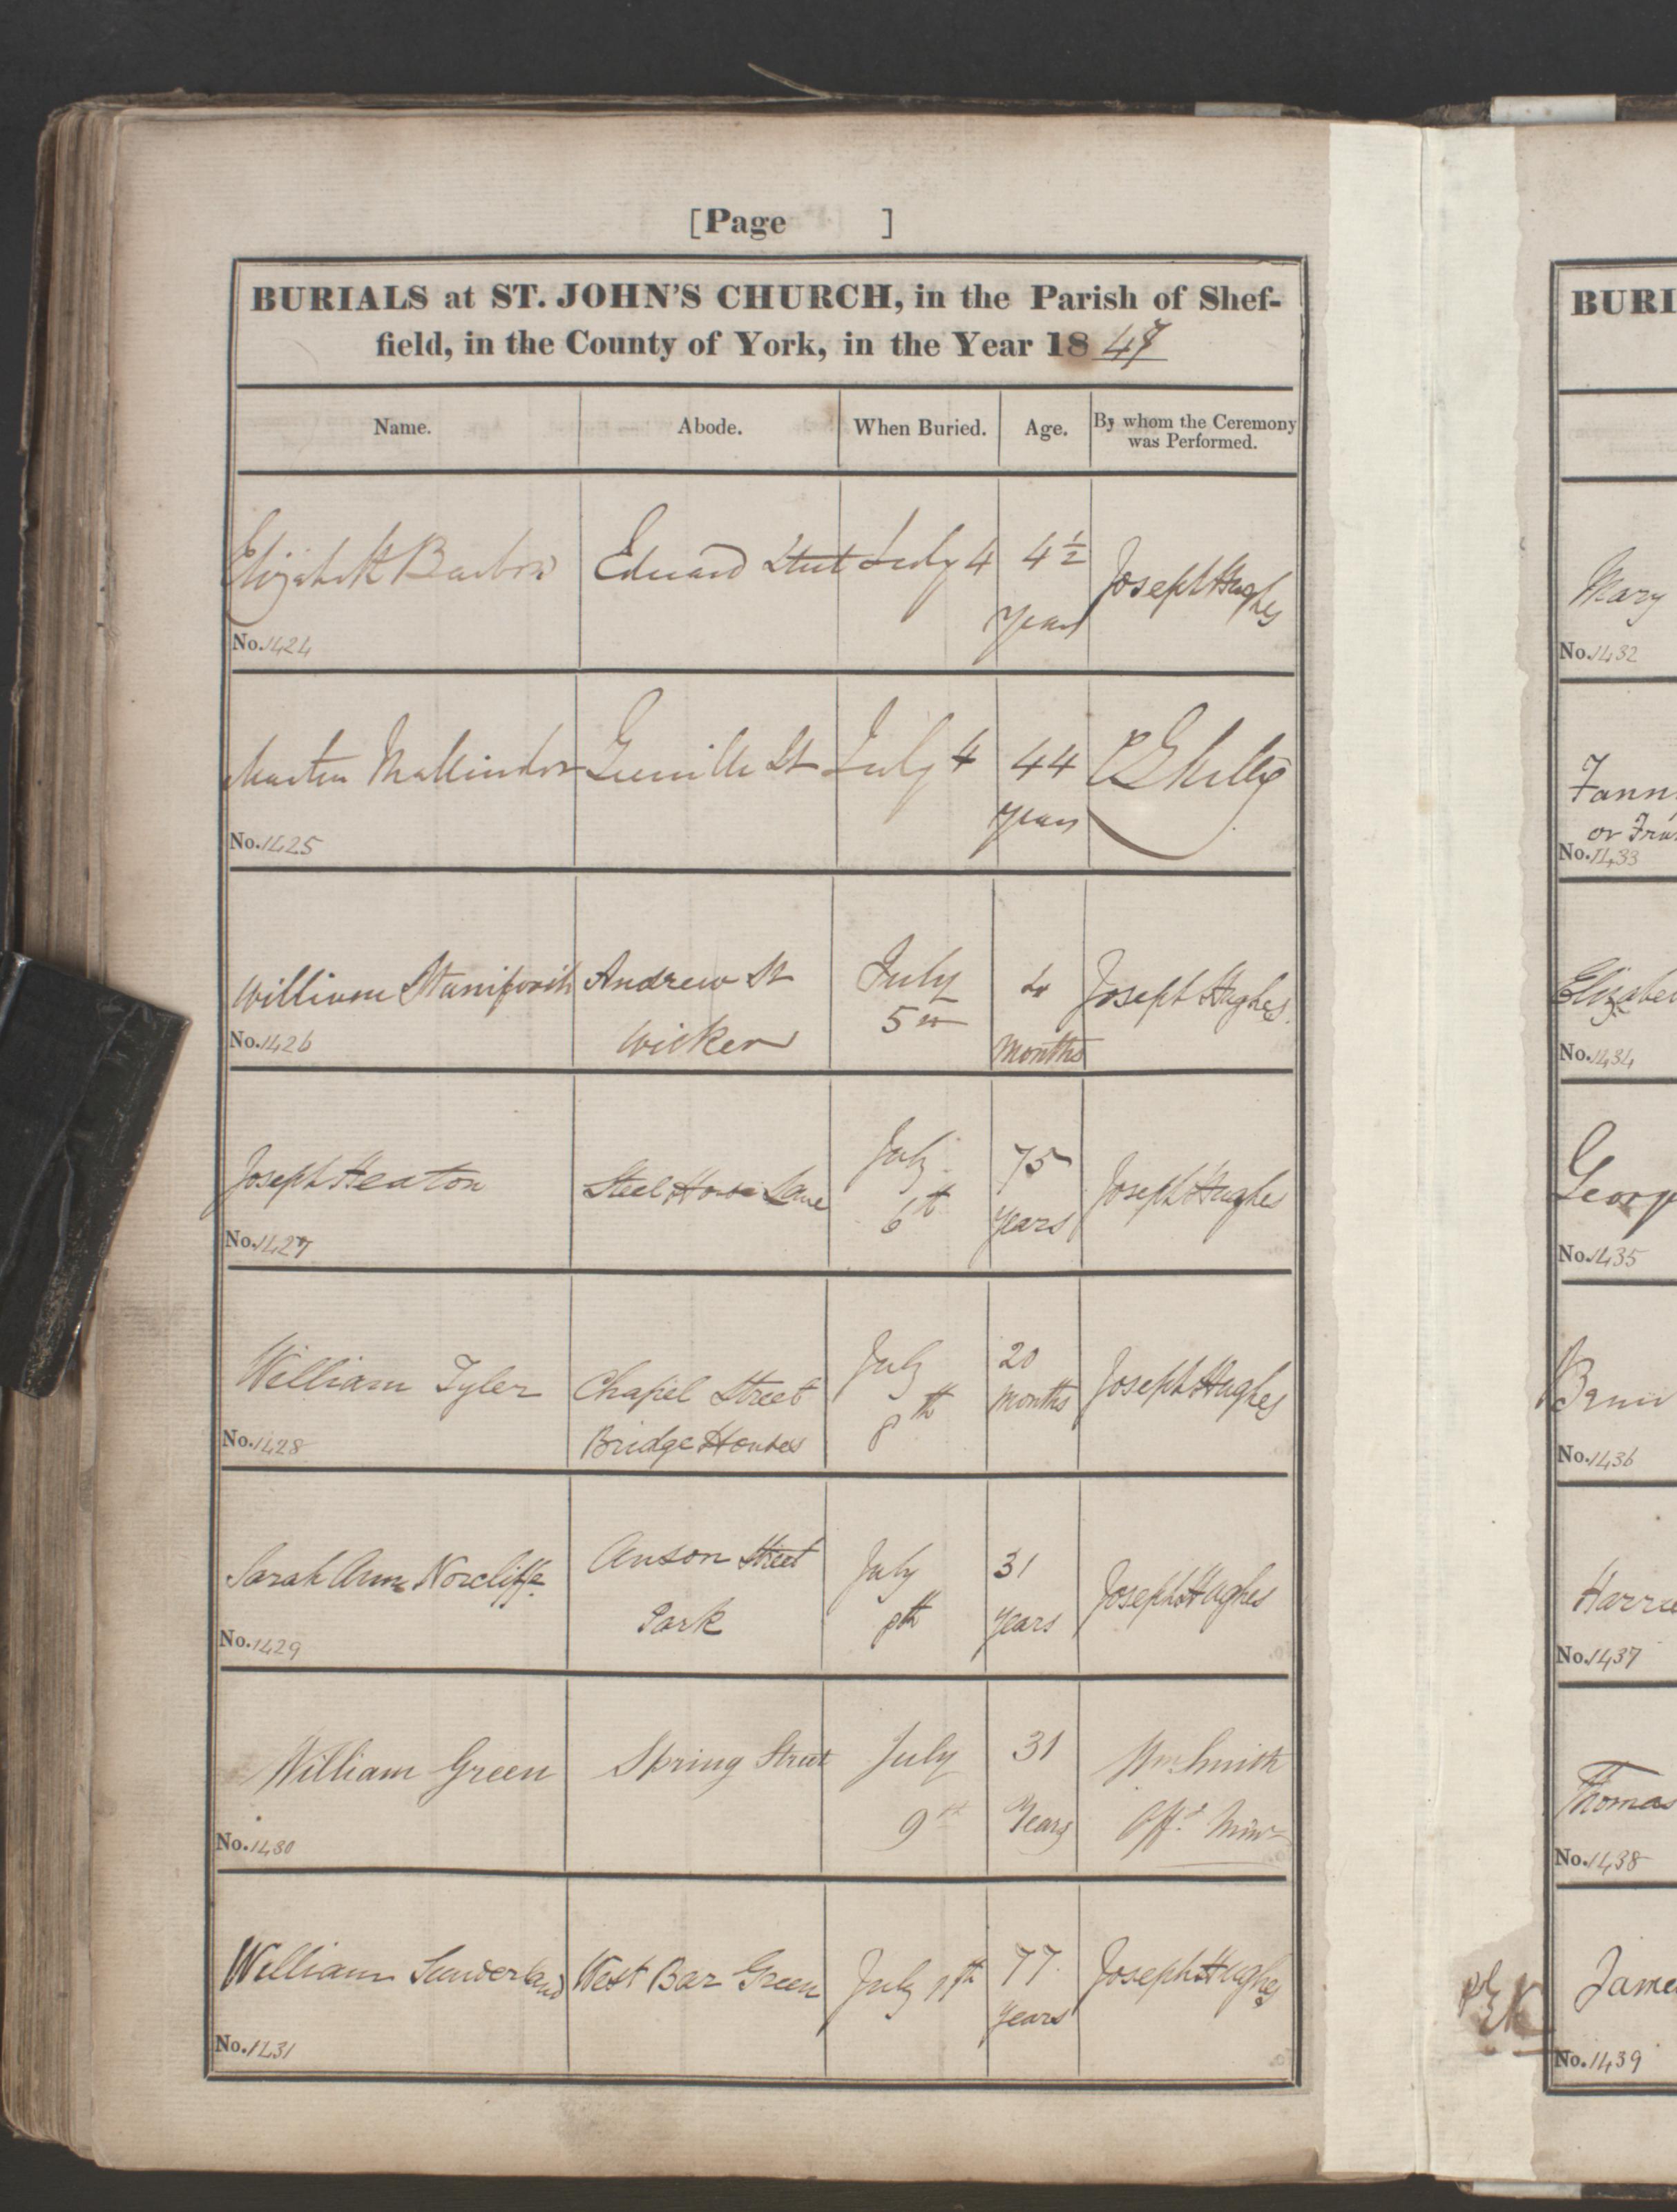 [Page ]
BURIALS at ST. JOHN'S CHURCH, in the Parish of Shef-
field, in the County of York, in the Year 1847
Name. Abode. When Buried. Age. By whom the Ceremony
was Performed.
Elizabeth Edward Street July 4 4½ Joseph Hughes
Years
No. 1424
July 4 44
years
No. 1425
William Staniforth Andrew St July 4 Joseph Hughes.
Wicker 5th Months
No. 1426
Joseph Heaton Steel House Lane July 75 Joseph Hughes
6th Years
No. 1427
William Tyler Chapel Street July 20 Joseph Hughes
Bridge Houses 8th Months
No. 1428
Sarah Ann Norcliffe Anson Street July 31 Joseph Hughes
Park 8th Years
No. 1429
William Green Spring Street July 31 Wm Smith
9th Years Offg Minr
No. 1430
William Sunderland West Bar Green July 77 Joseph Hughes
Years
No. 1431
BURI
Mary
No. 1432
Fann
or Fra
No. 1433
Elizabe
No. 1434
Georg
No. 1435
No. 1436
Harrie
No. 1437
Thomas
No. 1438
Jame
No. 1439